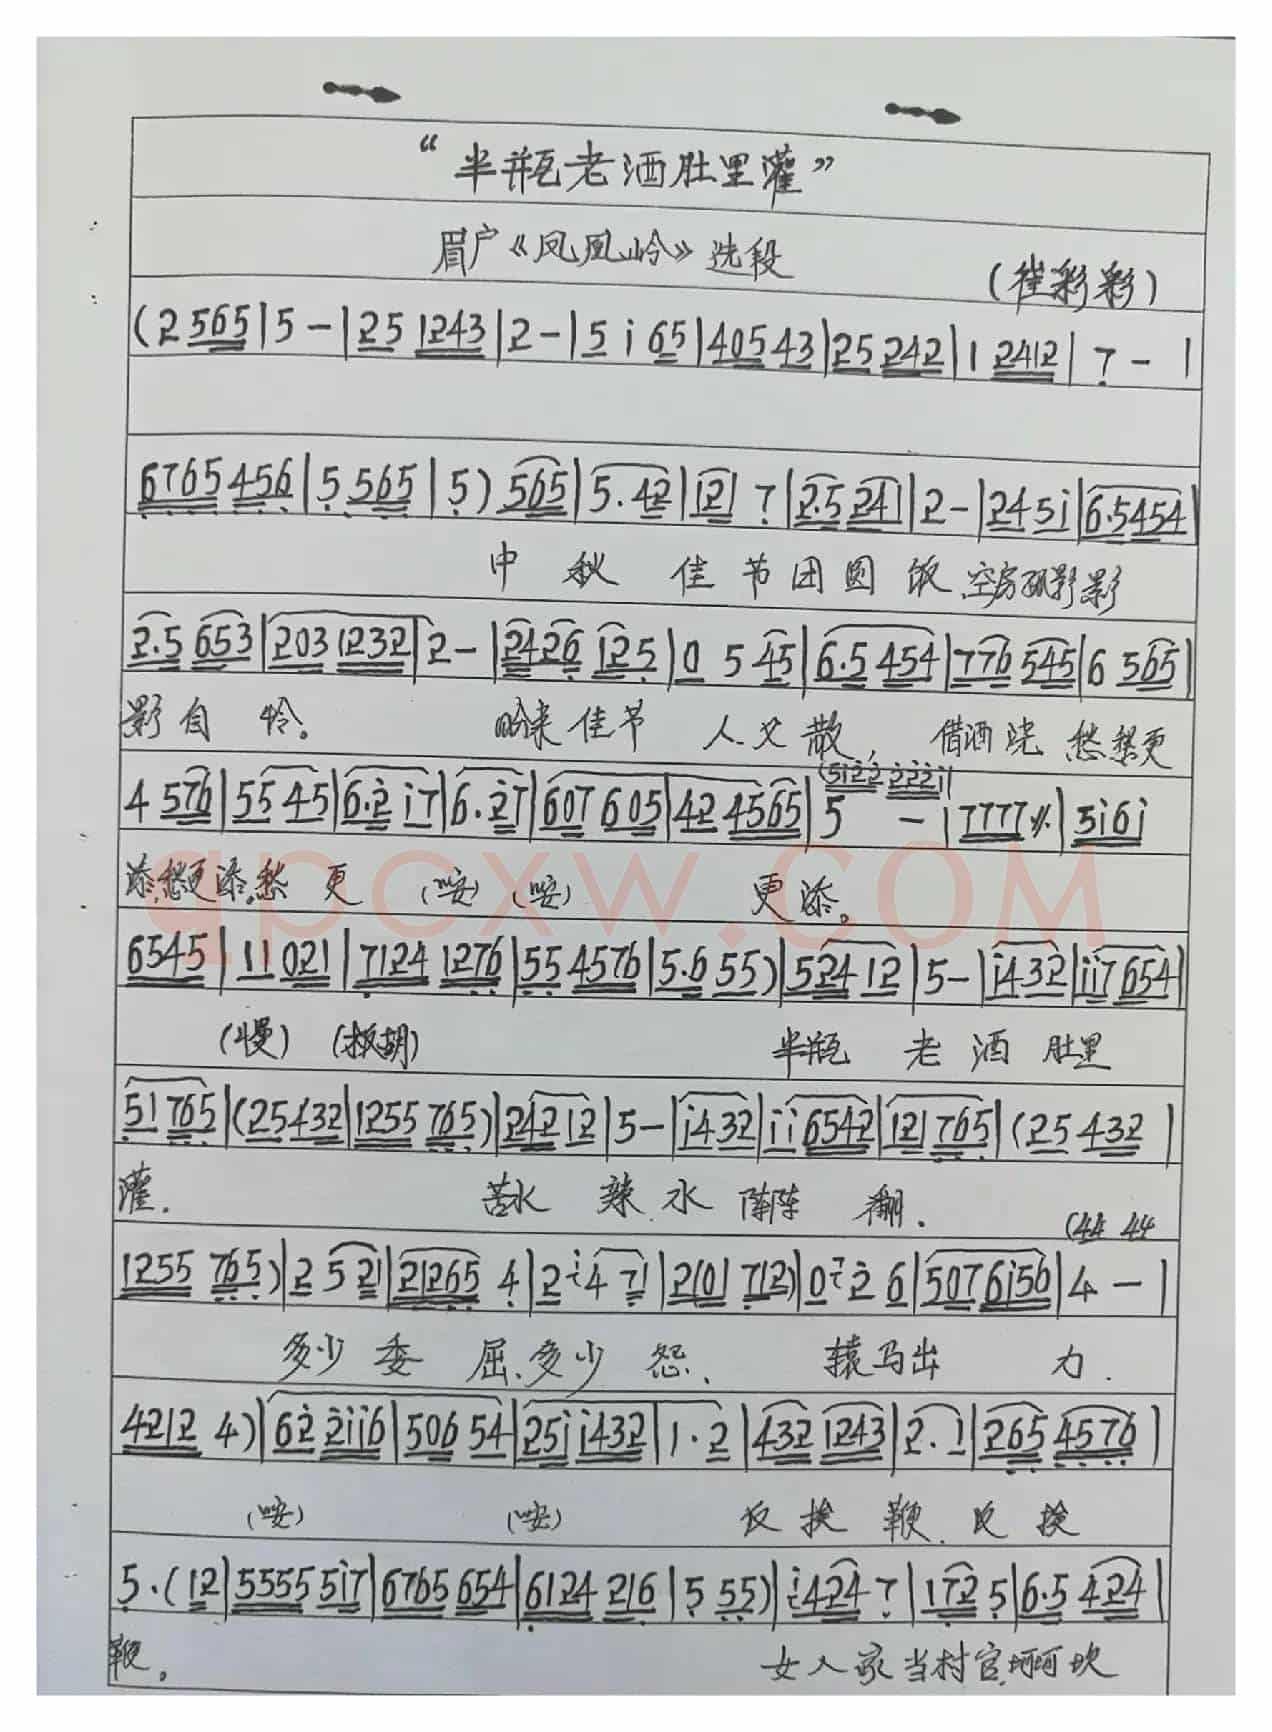 “半瓶老酒肚里灌”
眉户《凤凰岭》选段
(崔彩彩)
(2 565|5 -|25 1243|2-|5 i 65|405 43|25 242|1 2412|7 - |
6765 456|5 565|5) 565|5.42|121 7|2.5 241|2-|24 5i|6.5454|
中 秋 佳 节 团 圆 饭 空房孤影影
2.5 653|203 1232|2-|2426 125|0 5 45|6.5 454|776 545|6 565|
影 自 怜。 哈来佳节 人又散, 借酒浇 愁愁更
(5122 2221|
4 576|55 45|6.2 i7|6.27|607 605|42 4565|5 -|7777 ⁒|5i6i
添愁更添愁 更 (咹) (咹) 更添。
6545|11 021|7124 1276|55 4576|5.6 55)|524 12|5-|i432|ii7 654|
(慢) (板胡) 半瓶 老 酒 肚里
51 765|(25 432|1255 765)|242 12|5-|i432|ii 6542|121 765|(25 432|
灌. 苦水 辣 水 阵阵 翻.
(44 44
1255 765)|2 5 21|21265 4|2 i4 71|2(01 712)|0 7 2 6|507 6i56|4 -|
多少 委 屈.多少 怨. 辕马出 力.
4212 4)|62 2ii6|506 54|25i i432|1.2|432 1243|2.1|265 4576|
(咹) (咹) 反 挨 鞭. 反 挨
5.(12|5555 5i7|6765 654|6124 216|5 55)|i424 7|172 5|6.5 424|
鞭。 女人家当村官坷坷坎
qpcxw.com